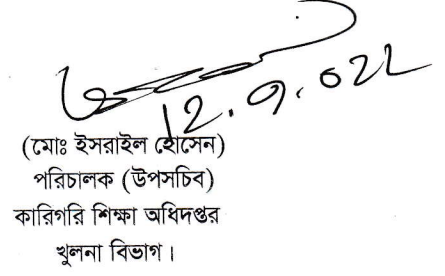 12.9.022
(মোঃ ইসরাইল হোসেন)
পরিচালক (উপসচিব)
কারিগরি শিক্ষা অধিদপ্তর
খুলনা বিভাগ।